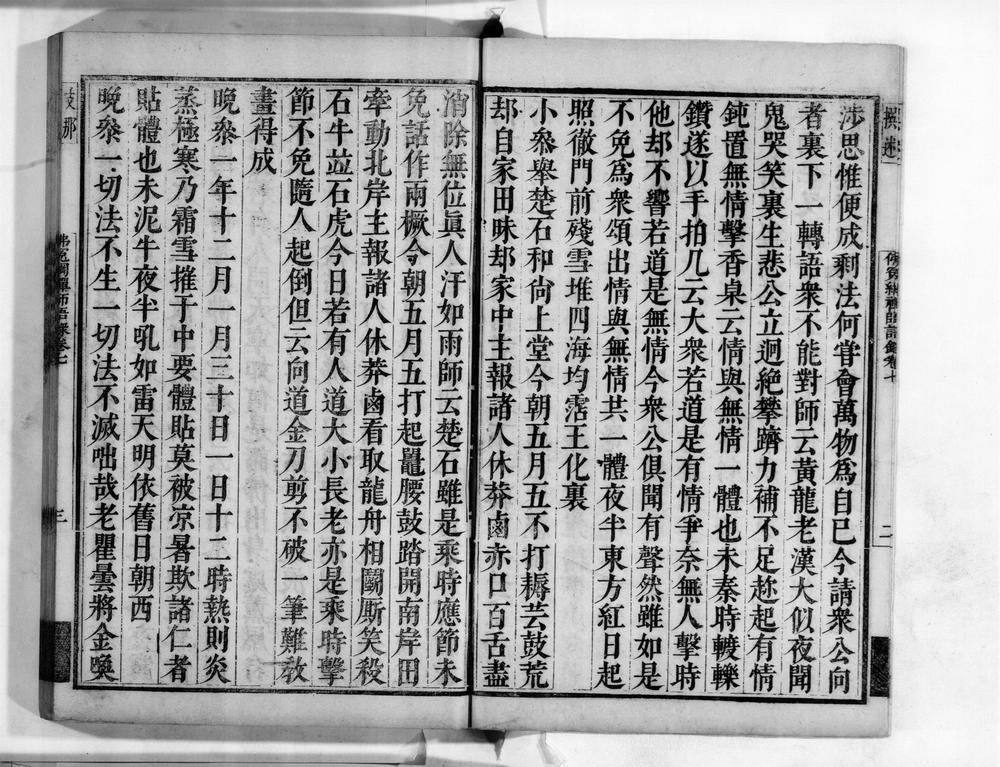 涉思惟便成剩法何甞會萬物爲自己今請衆公向
者裏下一轉語衆不能對師云黃龍老漢大似夜聞
鬼哭笑裏生悲公立迥絶攀躋力補不足趂起有情
鈍置無情擊香桌云情與無情一體也未秦時𨍏轢
鑽遂以手拍几云大衆若道是有情爭奈無人擊時
他却不響若道是無情今衆公俱聞有聲然雖如是
不免爲衆頌出情與無情共一體夜半東方紅日起
照徹門前殘雪堆四海均霑王化裏
小叅舉楚石和尙上堂今朝五月五不打耨芸鼓荒
却自家田昧却家中主報諸人休莽鹵赤口百舌盡
消除無位眞人汗如雨師云楚石雖是乘時應節未
免話作兩橛今朝五月五打起鼉腰鼓踏開南岸田
牽動北岸主報諸人休莽鹵看取龍舟相鬭厮笑殺
石牛竝石虎今日若有人道大小長老亦是乘時擊
節不免隨人起倒但云向道金刀剪不破一筆難敎
畫得成
晚叅一年十二月一月三十日一日十二時熱則炎
蒸極寒乃霜雪摧于中要體貼莫被凉暑欺諸仁者
貼體也未泥牛夜半吼如雷天明依舊日朝西
晚叅一切法不生一切法不滅咄哉老瞿曇將金喚
支那
禪師語錄卷七
二
三